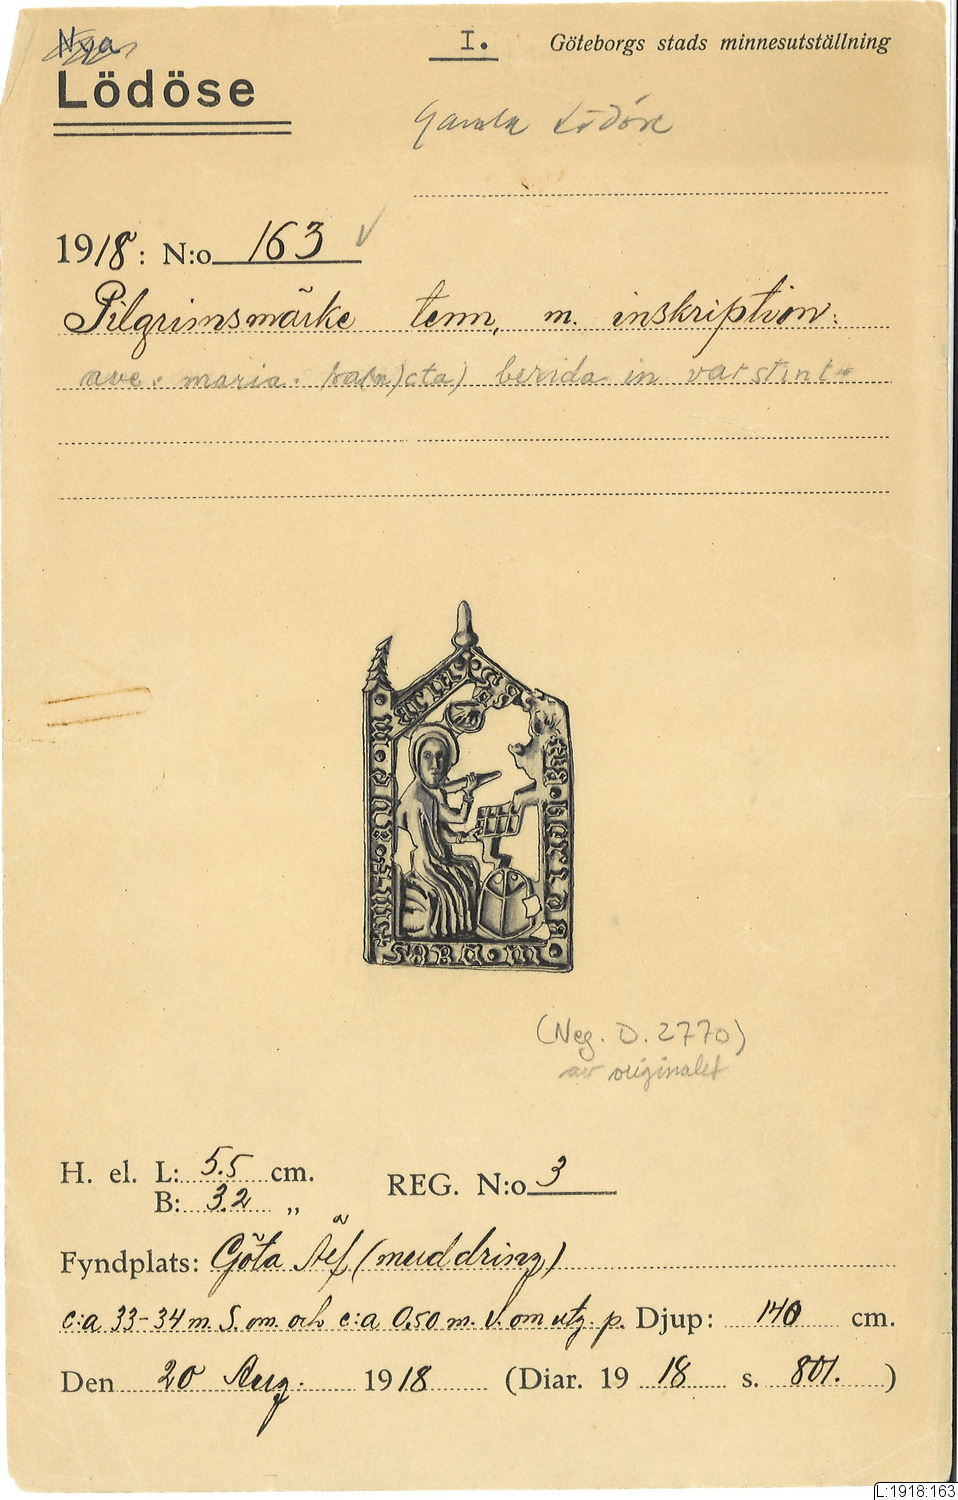 Nya
I. Göteborgs stads minnesutställning
Lödöse
Gamla Lödöse
1918: N:o 163
Pilgrimsmärke tenn, m. inskription:
ave. maria. cta) berida in varstint
(Neg. D. 2770)
av originalet
H. el. L: 5.5 cm. REG. N:o 3
B: 3.2 „
Fyndplats: Göta Älf (muddring)
c:a 33-34 m S. om. och c:a 0.50 m. V. om utg. p. Djup: 140 cm.
Den 20 Aug. 1918 (Diar. 1918 s. 801.)
L:1918:163